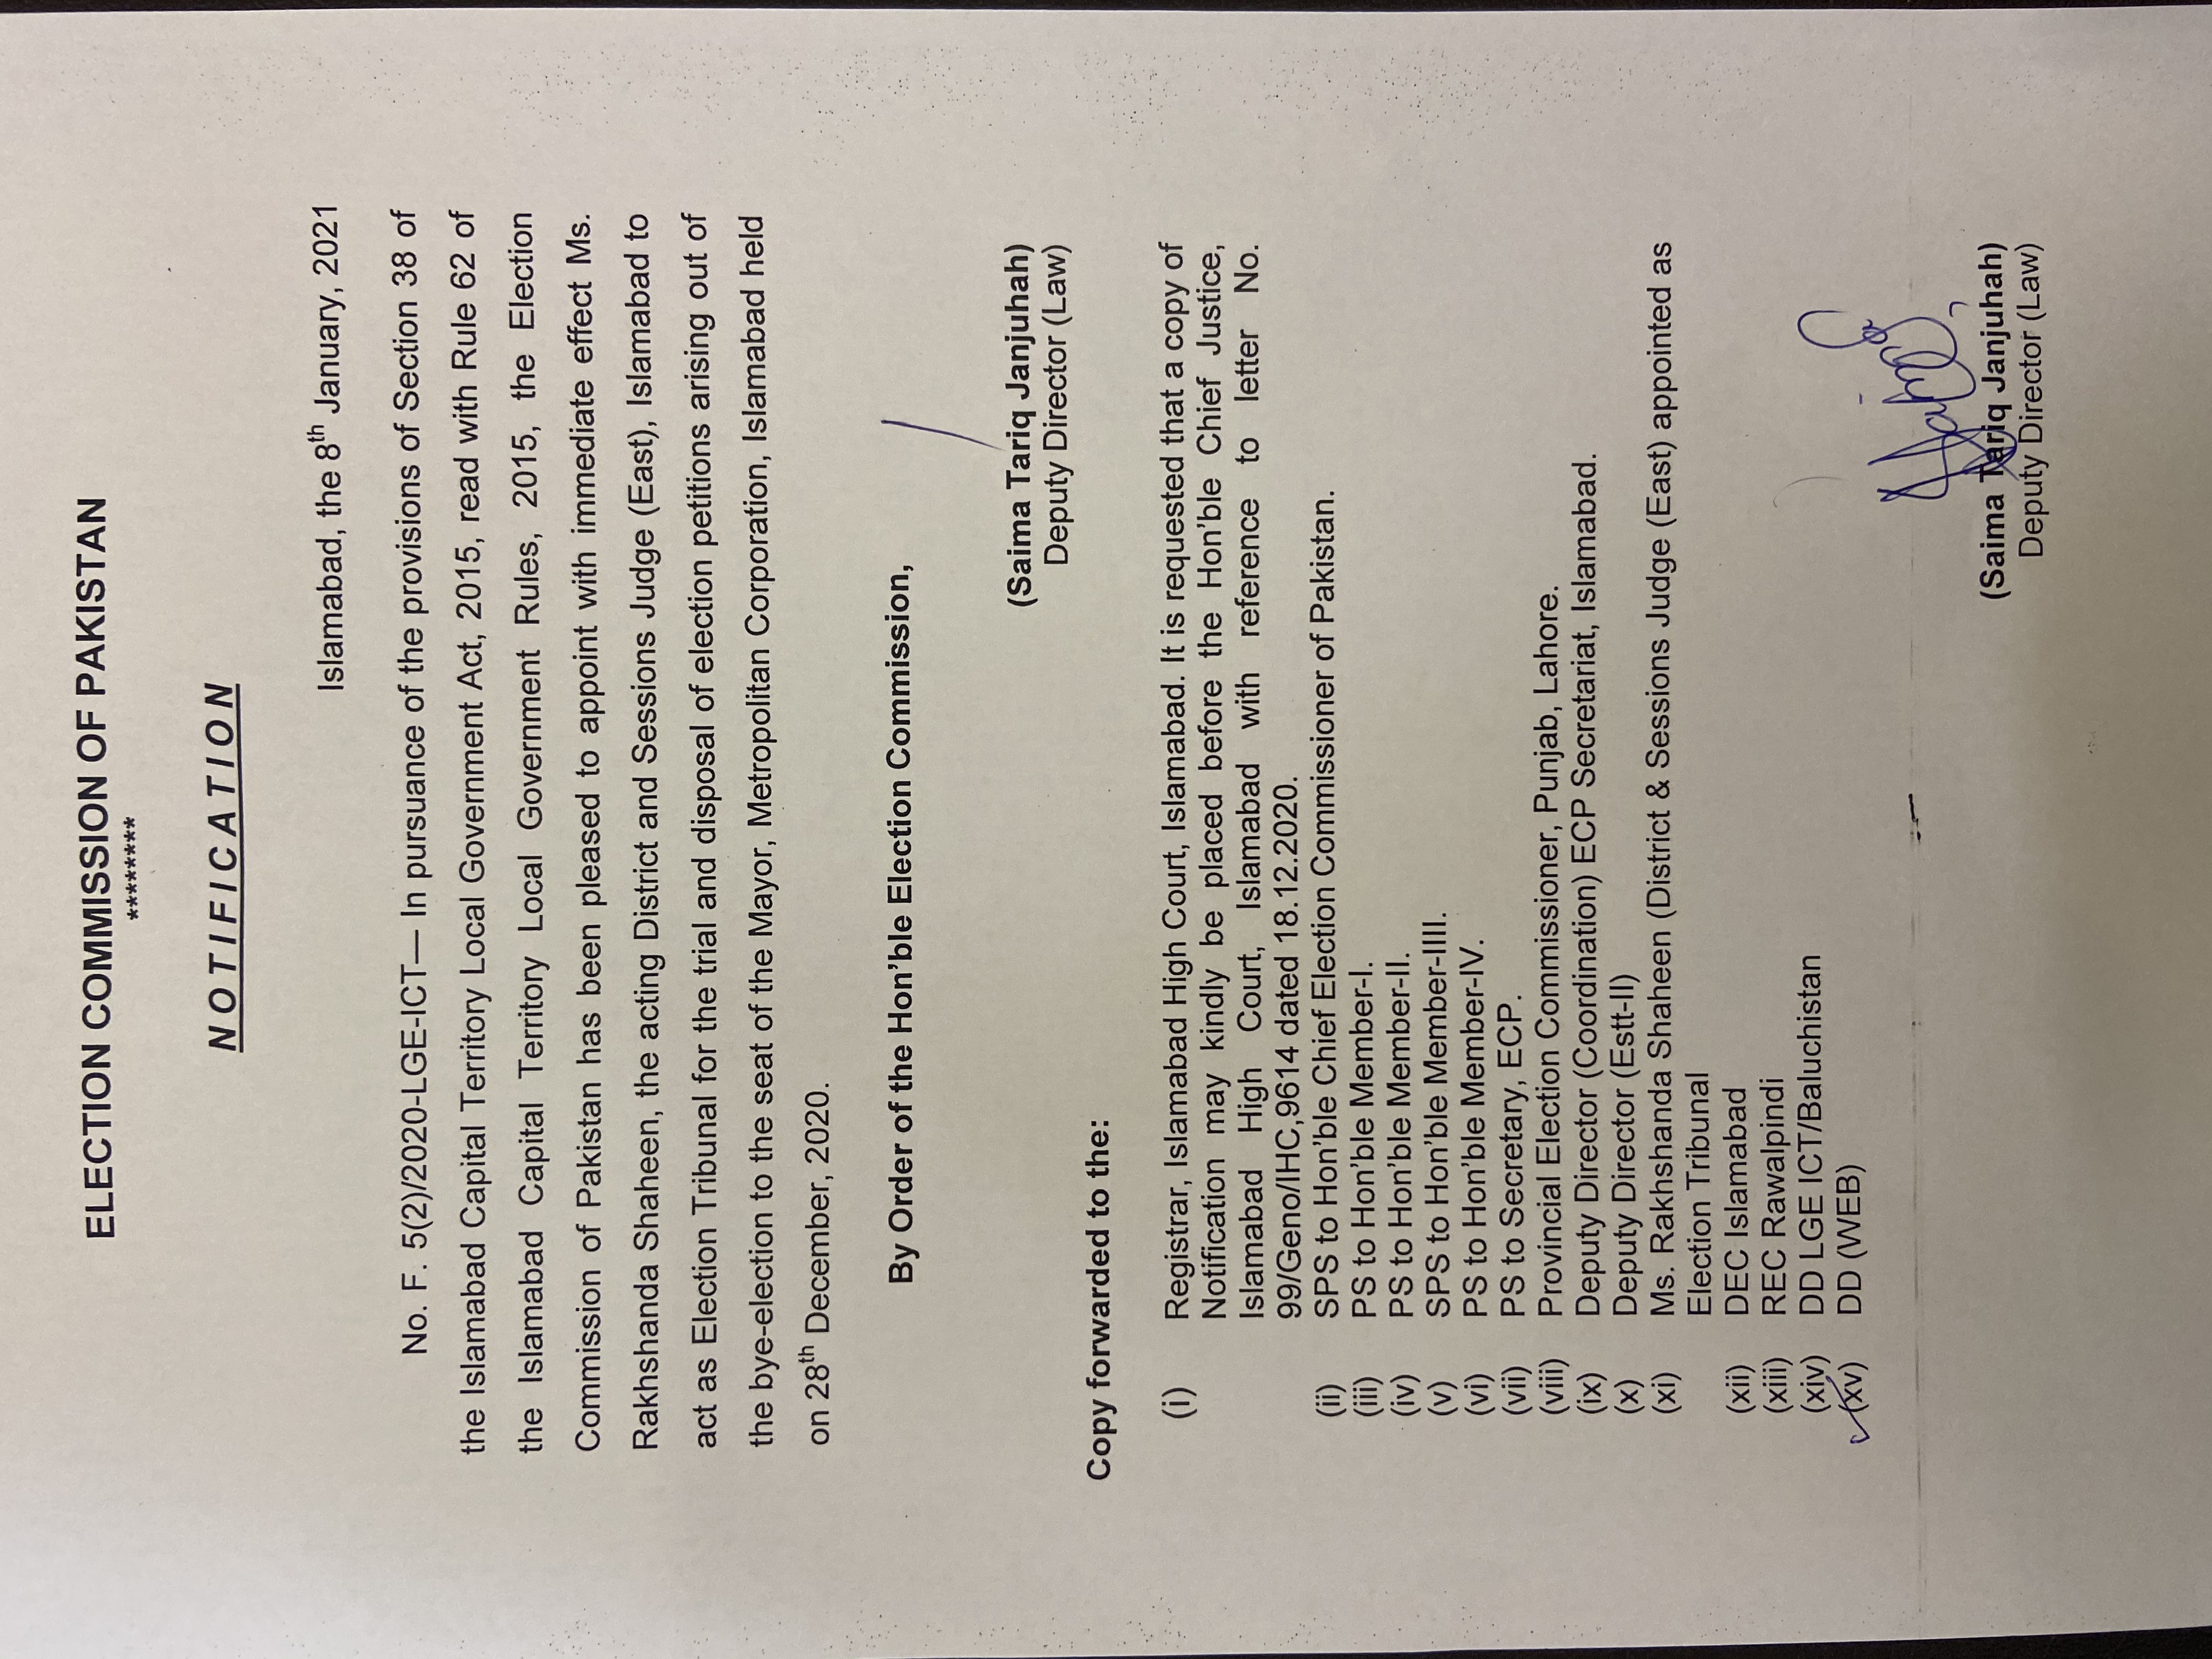 ELECTION COMMISSION OF PAKISTAN
********
NOTIFICATION
Islamabad, the 8th January, 2021
No. F. 5(2)/2020-LGE-ICT— In pursuance of the provisions of Section 38 of
the Islamabad Capital Territory Local Government Act, 2015, read with Rule 62 of
the Islamabad Capital Territory Local Government Rules, 2015, the Election
Commission of Pakistan has been pleased to appoint with immediate effect Ms.
Rakhshanda Shaheen, the acting District and Sessions Judge (East), Islamabad to
act as Election Tribunal for the trial and disposal of election petitions arising out of
the bye-election to the seat of the Mayor, Metropolitan Corporation, Islamabad held
on 28th December, 2020.
By Order of the Hon'ble Election Commission,
(Saima Tariq Janjuhah)
Deputy Director (Law)
Copy forwarded to the:
(i) Registrar, Islamabad High Court, Islamabad. It is requested that a copy of
Notification may kindly be placed before the Hon'ble Chief Justice,
Islamabad High Court, Islamabad with reference to letter No.
99/Geno/IHC,9614 dated 18.12.2020.
(ii) SPS to Hon'ble Chief Election Commissioner of Pakistan.
(iii) PS to Hon'ble Member-I.
(iv) PS to Hon'ble Member-II.
(v) SPS to Hon'ble Member-IIII.
(vi) PS to Hon'ble Member-IV.
(vii) PS to Secretary, ECP.
(viii) Provincial Election Commissioner, Punjab, Lahore.
(ix) Deputy Director (Coordination) ECP Secretariat, Islamabad.
(x) Deputy Director (Estt-II)
(xi) Ms. Rakhshanda Shaheen (District & Sessions Judge (East) appointed as
Election Tribunal
(xii) DEC Islamabad
(xiii) REC Rawalpindi
(xiv) DD LGE ICT/Baluchistan
(xv) DD (WEB)
(Saima Tariq Janjuhah)
Deputy Director (Law)